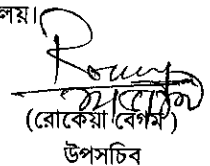 লয়।
(রোকেয়া বেগম)
উপসচিব